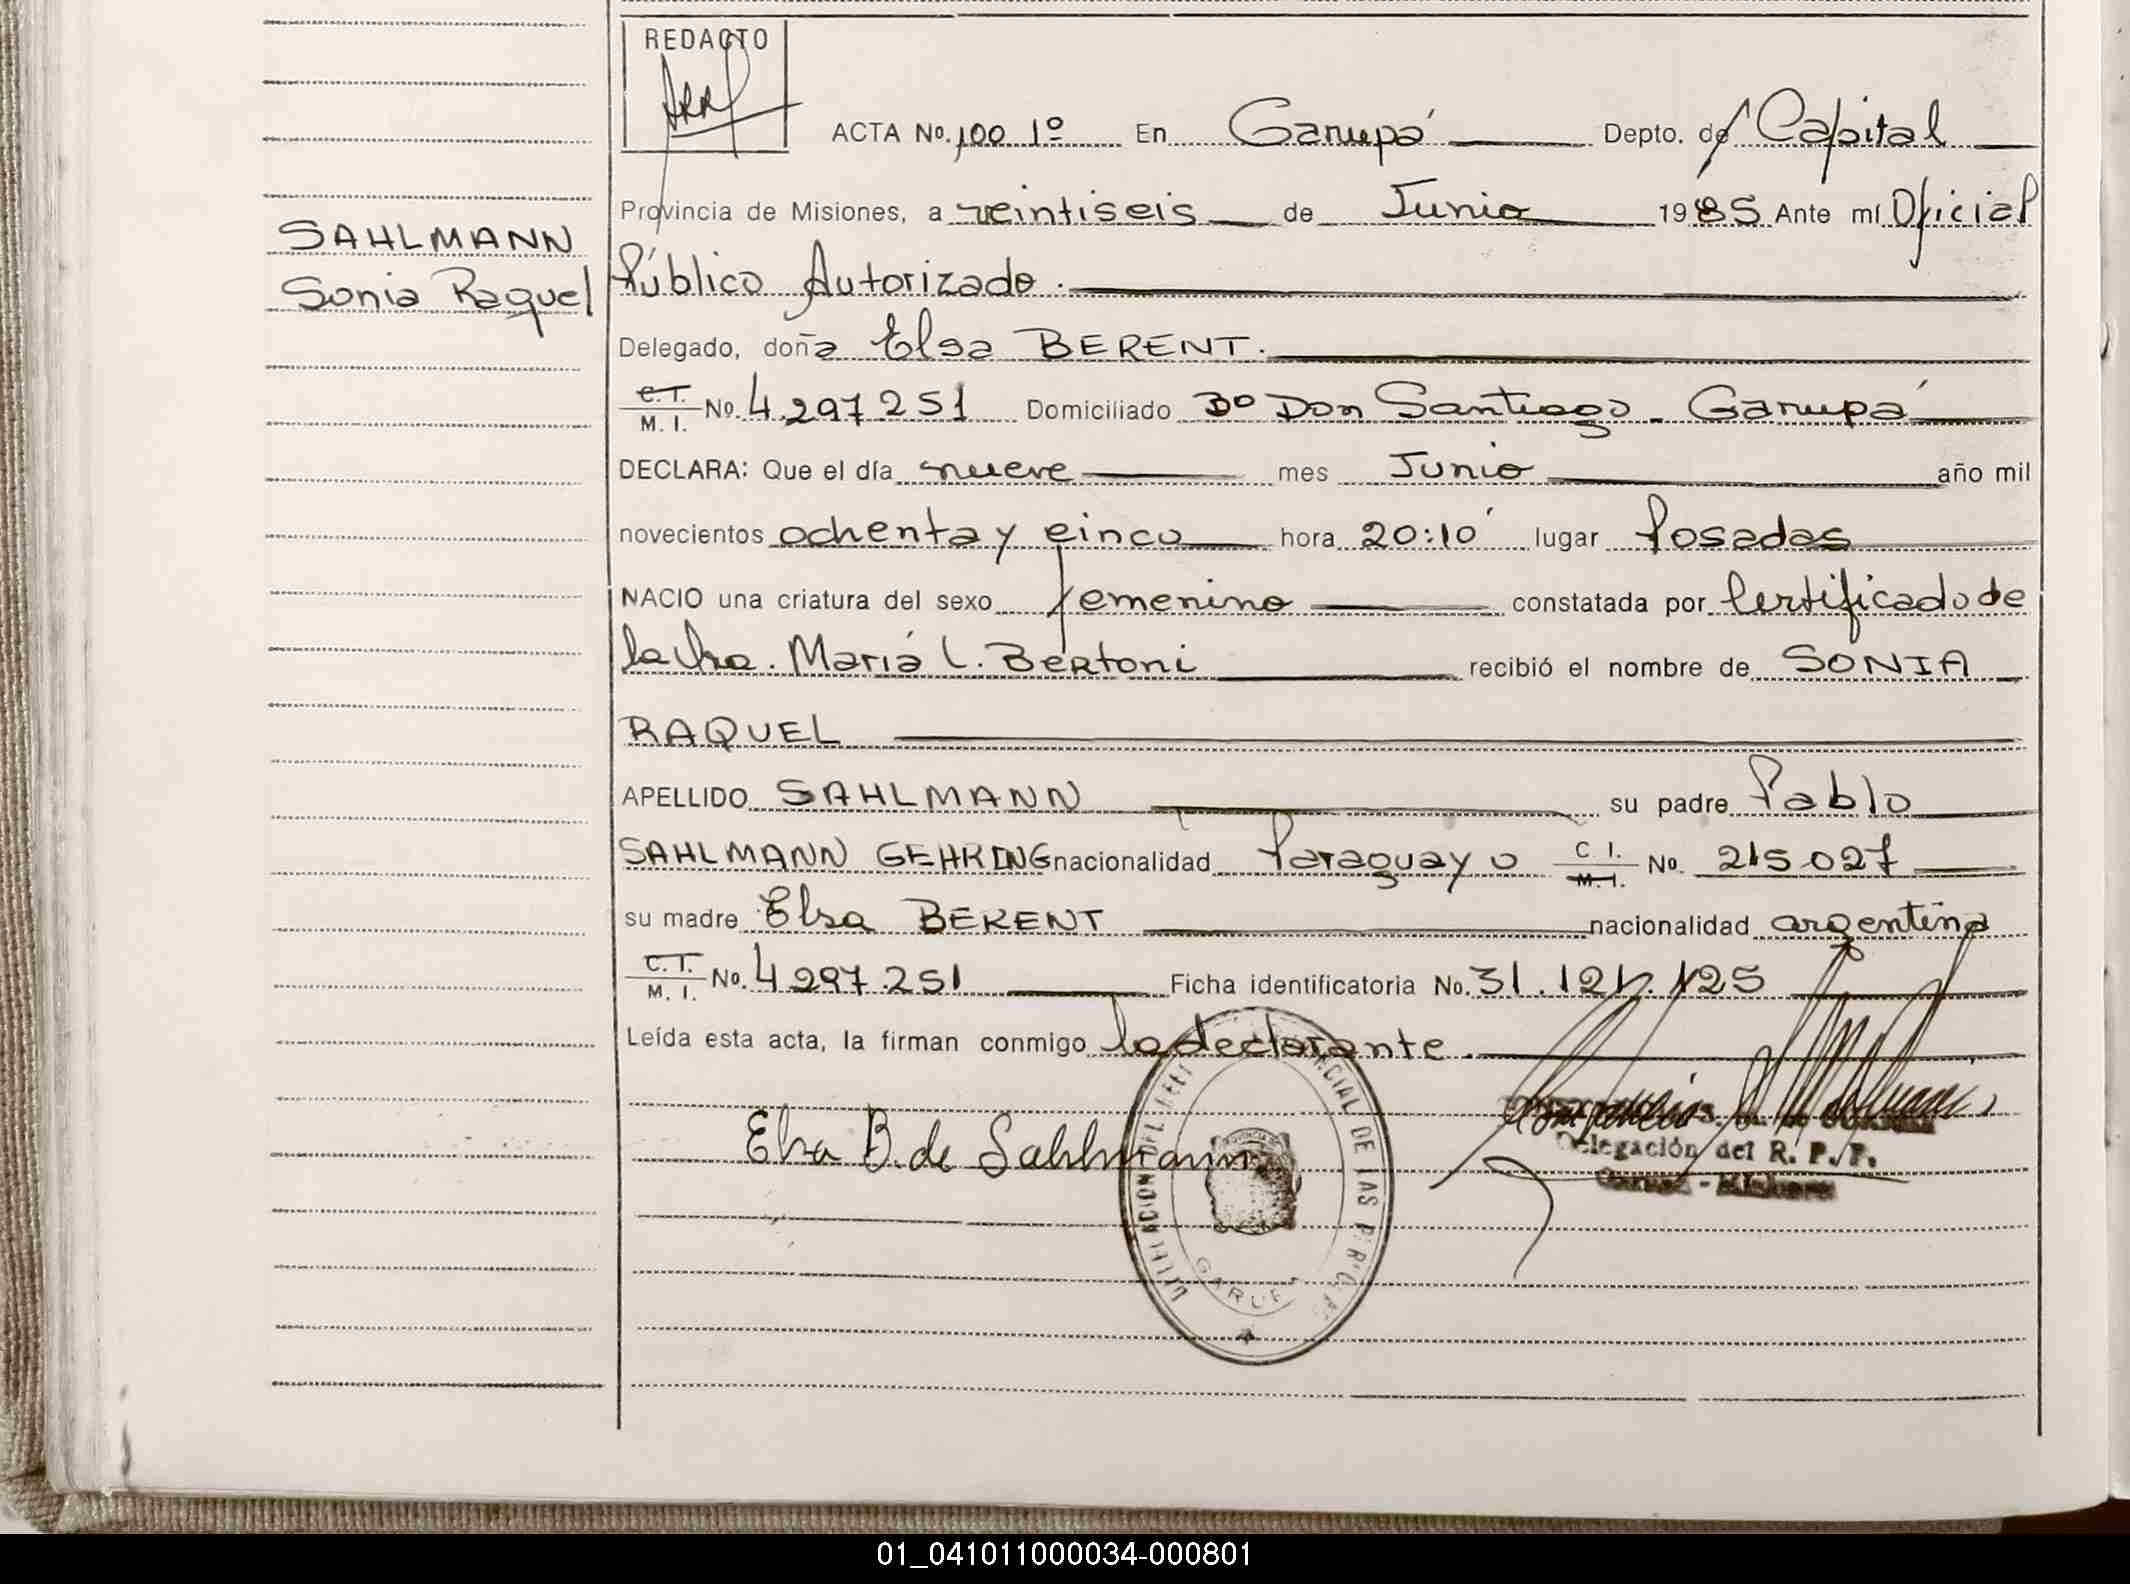 REDACTO
ACTA No. 100 1º En Garupá Depto. de Capital
Provincia de Misiones, a veintiseis de Junio 1985 Ante mí Oficial
SAHLMANN
Sonia Raquel
Público Autorizado.
Delegado, doña Elsa BERENT.
C.I. M. I. No. 4.297 251 Domiciliado Bº Don Santiago - Garupá
DECLARA: Que el día nueve mes Junio año mil
novecientos ochenta y cinco hora 20:10' lugar Posadas
NACIO una criatura del sexo femenino constatada por Certificado de
la Dra. María L. Bertoni recibió el nombre de SONIA
RAQUEL
APELLIDO SAHLMANN su padre Pablo
SAHLMANN GEHRING nacionalidad Paraguayo C I. M. I. No. 215.027
su madre Elsa BERENT nacionalidad argentina
C.I. M. I. No. 4 297.251 Ficha identificatoria No. 31.121.125
Leída esta acta, la firman conmigo la declarante.
Elsa B. de Sahlmann
Delegación del R. P. P.
Garupá - Misiones
DELEGACION DEL PROVINCIAL DE LAS
GARUPA
01_041011000034-000801